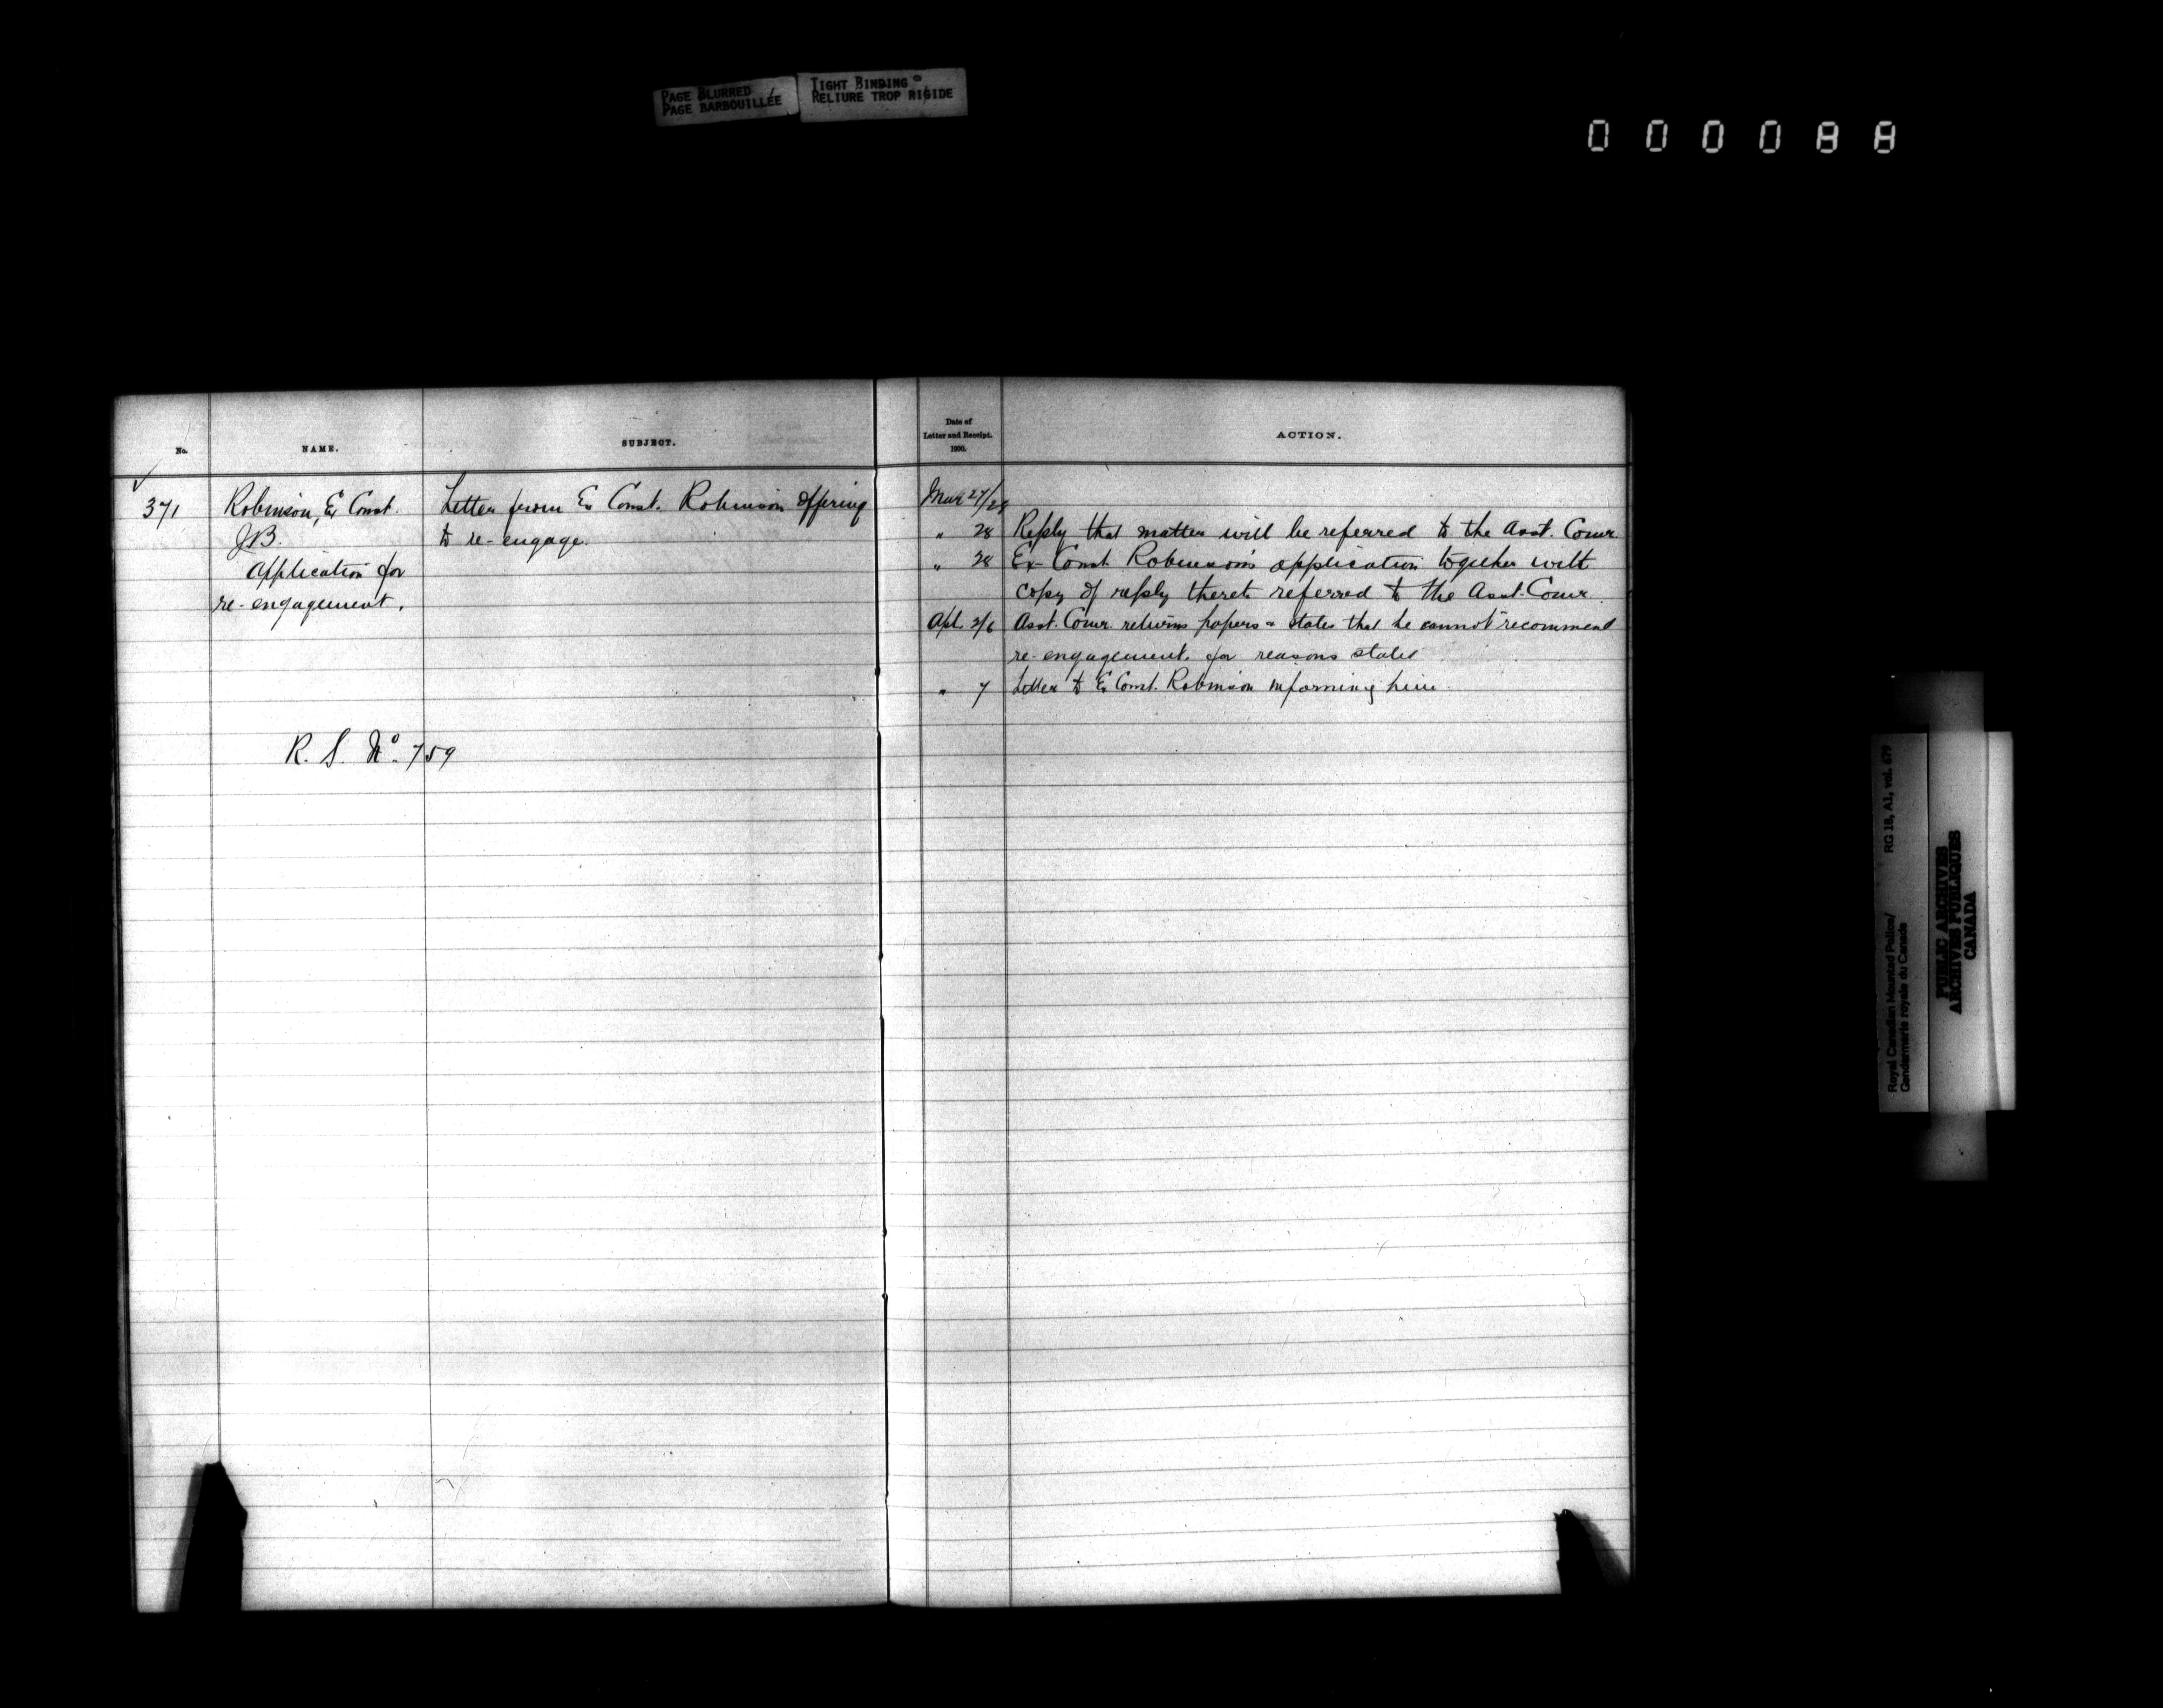 PAGE BLURRED
PAGE BARBOUILLÉE
TIGHT BINDING
RELIURE TROP RIGIDE
000088
No.
NAME.
SUBJECT.
Date of
Letter and Receipt.
1900.
ACTION.
371
Robinson, Ex Const.
J.B.
Application for
re-engagement.
R. S. No. 759
Letter from Ex Const. Robinson offering
to re-engage.
Mar 27/28
" 28 Reply that matter will be referred to the Asst. Comr.
" 28 Ex-Const. Robinson's application together with
copy of reply thereto referred to the Asst. Comr.
Apl. 2/6 Asst. Comr. returns papers & states that he cannot recommend
re-engagement, for reasons stated
" 7 Letter to Ex Const. Robinson informing him.
Royal Canadian Mounted Police/
Gendarmerie royale du Canada
RG 18, A1, vol. 679
PUBLIC ARCHIVES
ARCHIVES PUBLIQUES
CANADA